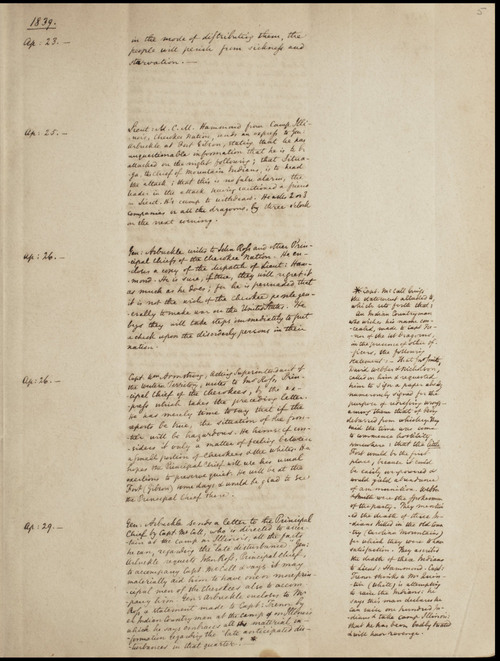 5
1839.
Ap: 23. —
in the mode of distributing them, the
people will perish from sickness and
starvation. —
Ap: 25. —
Lieut: H. C. M. Hammond from Camp Illi-
nois, Cherokee Nation, sends an express to Gen:
Arbuckle at Fort Gibson, stating that he has
unquestionable information that he is to be
attacked on the night following; that
the Chief of Mountain Indians, is to head
the attack; that this is no false alarm, the
leader in the attack having cautioned a friend
in Lieut. H's camp to withdraw. He asks 2 or 3
companies or all the dragoons, by three o'clock
on the next evening.
Ap: 26. —
Gen: Arbuckle writes to John Ross and other Prin-
cipal Chiefs of the Cherokee Nation. He en-
closes a copy of the dispatch of Lieut: Ham-
mond. He is sure, if true, they will regret it
as much as he does; for he is persuaded that
it is not the wish of the Cherokee people gen-
erally to make war on the United States. He
begs they will take steps immediately to put
a check upon the disorderly persons in their
nation.
Ap: 26. —
Capt: Wm. Armstrong, Acting Superintendent of
the Western Territory, writes to Mr. Ross, Prin-
cipal Chief of the Cherokees, by the ex-
press which takes the preceding letter.
He has merely time to say that if the
reports be true, the situation of the fron-
tier will be hazardous. He knows if con-
siders it only a matter of feeling between
a small portion of Cherokees & the whites. He
hopes the Principal Chief will use his usual
exertions to preserve quiet. He will be at the
Fort (Gibson) some days & would be glad to see
the Principal Chief there.
Ap: 29. —
Gen: Arbuckle sends a letter to the Principal
Chief by Capt: McCall, who is directed to ascer-
tain at the camp on Illinois, all the facts
he can, regarding the late disturbance. Gen:
Arbuckle requests John Ross, Principal Chief,
to accompany Capt: McCall & says it may
materially aid him to have one or more prin-
cipal men of the Cherokees also to accom-
pany him. Gen: Arbuckle encloses to Mr.
Ross a statement made to Capt: Trenor by
an Indian Countryman at the camp on Illinois
which he says embraces all the material in-
formation regarding the late anticipated dis-
turbances in that quarter.
Capt: McCall brings
the statement alluded to,
which sets forth that:
An Indian Countryman
who wishes his name con-
cealed, made to Capt: Tre-
nor of the 1st Dragoons,
in the presence of other of-
ficers, the following
statement: — That
called on him & requested
him to sign a paper already
numerously signed for the
purpose of redressing wrongs
among them that of being
debarred from whiskey. They
said the time was come
to commence hostility
somewhere & that the
Fort would be the first
place, because it could
be easily overpowered &
would yield abundance
of ammunition.
Smith were the spokesmen
of the party. They mention
ed the death of three In-
dians killed in the Old Coun-
try
for which they were to have
satisfaction. They assisted
the death of these Indians
to Lieut: Hammond. Capt:
Trenor thinks a Mr.
(White) is attempting
to raise the Indians; he
says this man declares he
can raise one hundred In-
dians & take Camp Illinois;
that he has been badly treated
& will have revenge.